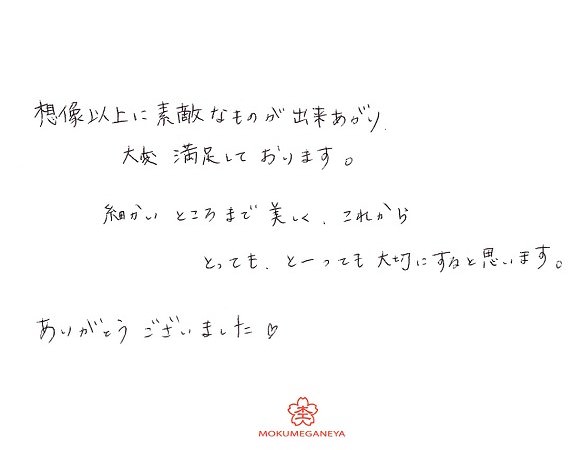 想像以上に素敵なものが出来あがり、
大変 満足しております。
細かい ところまで 美しく、これから
とっても、とーっても 大切にすると思います。
ありがとう ございました♡
杢
MOKUMEGANEYA